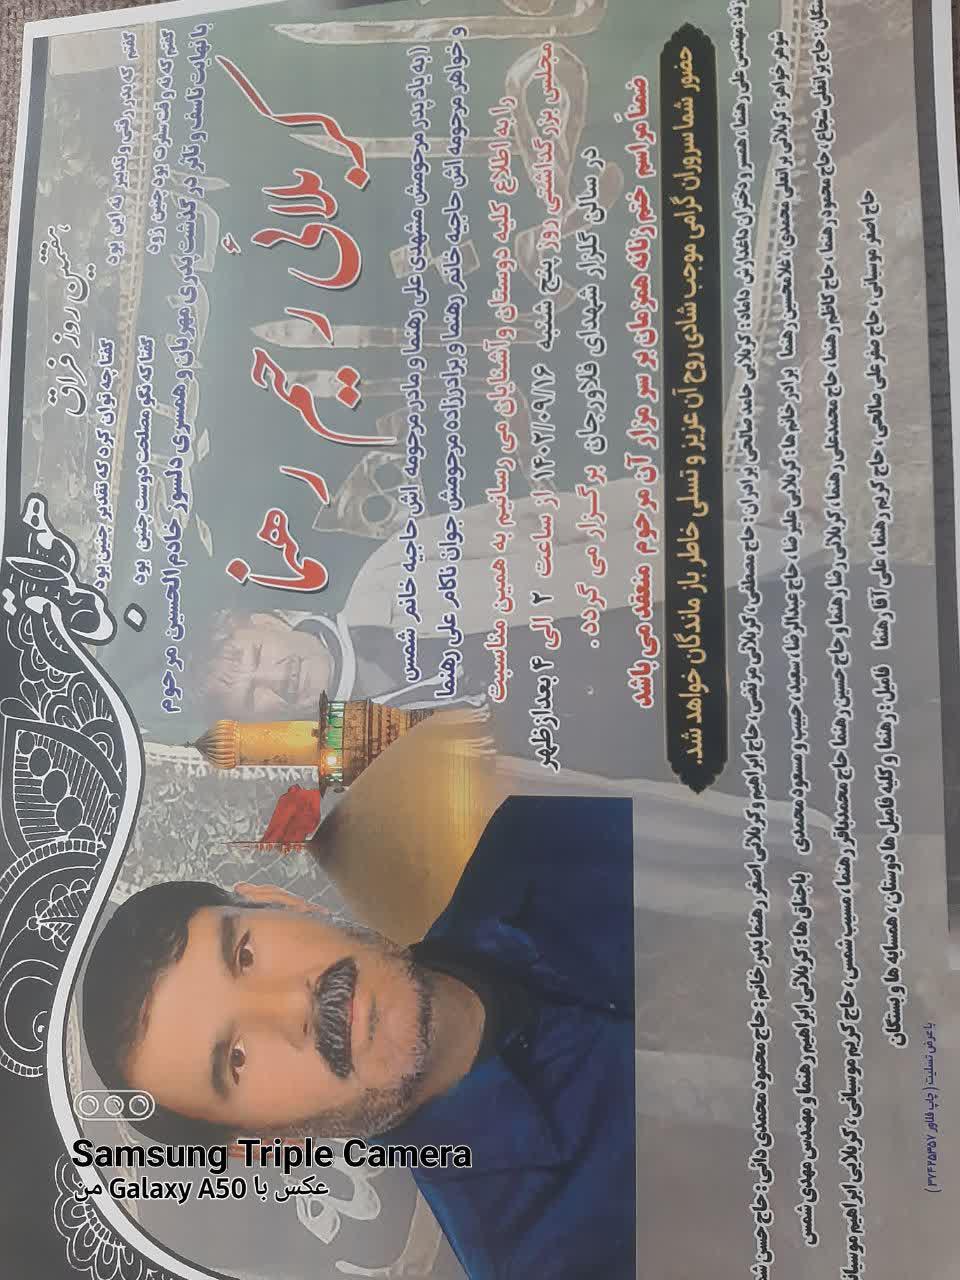 هوالباقی
هفتمین روز فراق
گفتم که پدر رفتی و تدبیر نه این بود
گفتا چه توان کرد که تقدیر چنین بود
گفتم که نه وقت سفرت بود چنین زود
گفتا که نگو مصلحت دوست چنین بود
با نهایت تاسف و تاثر درگذشت پدری مهربان و همسری دلسوز خادم الحسین مرحوم
کربلائی رحیم رهنما
(به یاد پدر مرحومش مشهدی علی رهنما و مادر مرحومه اش حاجیه خانم شمس
و خواهر مرحومه اش حاجیه خانم رهنما و برادرزاده مرحومش جوان ناکام علی رهنما
را به اطلاع کلیه دوستان وآشنایان می رسانیم به همین مناسبت
مجلس بزرگداشتی روز پنج شنبه ۱۴۰۲/۰۹/۱۶ از ساعت ۲ الی ۴ بعدازظهر
در سالن گلزار شهدای فلاورجان برگزار می گردد .
ضمنا مراسم ختم زنانه همزمان بر سر مزار آن مرحوم منعقد می باشد
حضور شما سروران گرامی موجب شادی روح آن عزیز و تسلی خاطر بازماندگان خواهد شد.
مهندس علی رهنما ، همسر و دختران داغدارش داماد : کربلائی حامد صالحی برادران : حاج مصطفی ، کربلائی مرتضی ، حاج ابراهیم و کربلائی اصغر رهنما پدر خانم : حاج محمود محمدی دائی : حاج حسن
شوهر خواهر : کربلائی براتعلی محمدی ، غلامحسین رهنما برادر خانم ها : کربلائی علیرضا حاج عبدالرضا ، سعید ، حبیب و مسعود محمدی باجناق ها : کربلائی ابراهیم رهنما و مهندس مهدی شمس
حاج براتعلی شجاع ، حاج محمود رهنما ، حاج کاظم رهنما ، حاج محمدعلی رهنما ، کربلائی رضا رهنما و حاج حسین رهنما حاج محمدباقر رهنما ، مسیب شمس ، حاج کریم موسیائی ، کربلایی ابراهیم
حاج اصغر موسیائی ، حاج صفرعلی صالحی ، حاج کریم رهنما ، علی آقا رهنما فامیل : رهنما و کلیه فامیل ها دوستان ، همسایه ها و بستگان
با عرض تسلیت ( چاپ فلاور ۳۷۴۲۵۳۵۷ )
Samsung Triple Camera
عکس با Galaxy A50 من